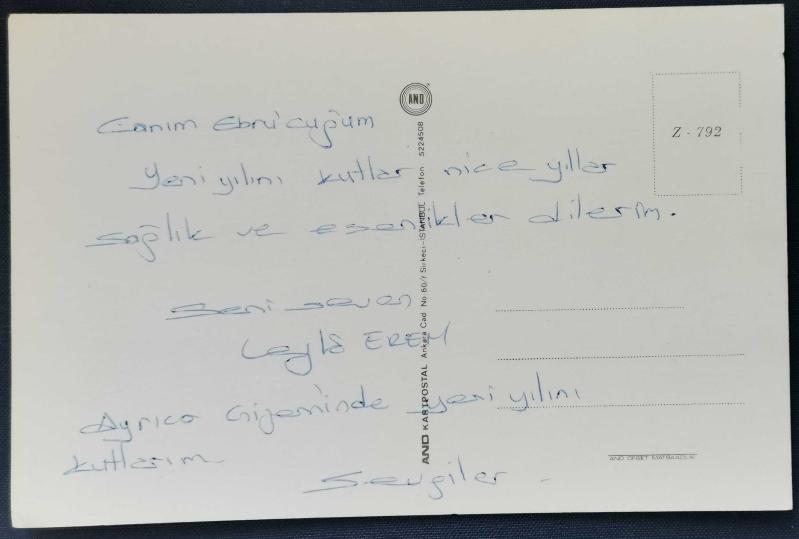 Canım Ebru'cuğum
Yeni yılını kutlar nice yıllar
sağlık ve esenlikler dilerim.
Seni seven
Leylâ EREM
Ayrıca Gizem'inde yeni yılını
kutlarım
Sevgiler
AND
AND KARTPOSTAL Ankara Cad. No. 60/1 Sirkeci-İSTANBUL Telefon 5224508
Z - 792
AND OFSET MATBAACILIK